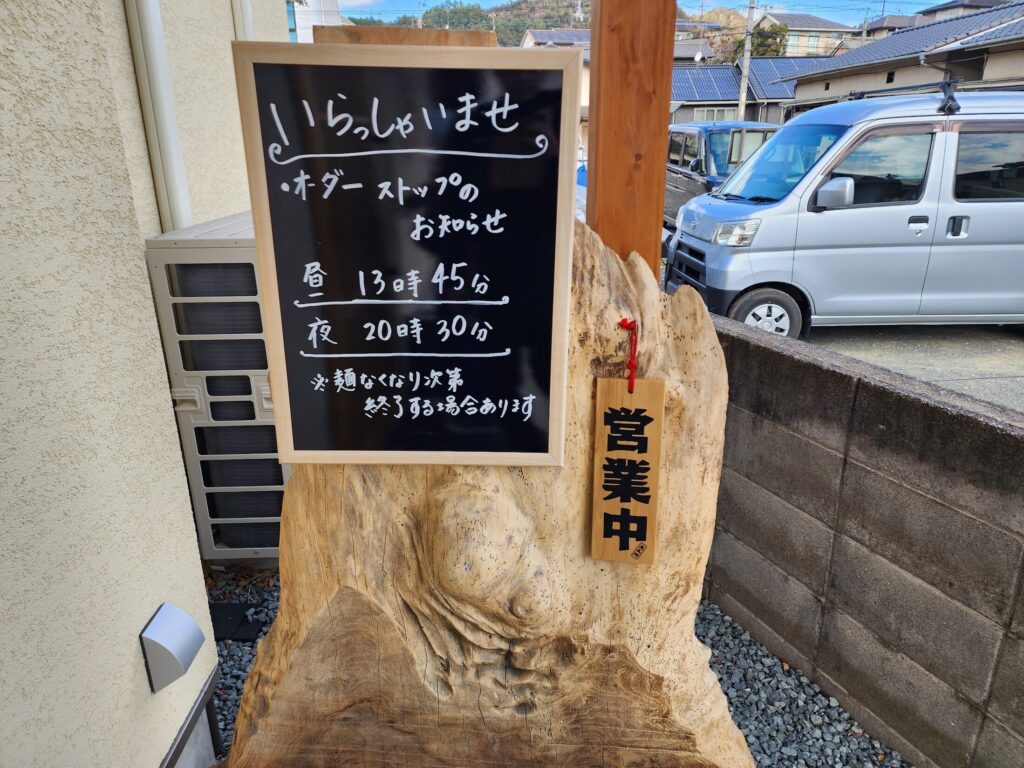 いらっしゃいませ
・オーダー ストップの
お知らせ
昼 13時45分
夜 20時30分
※麺なくなり次第
終了する場合あります
営業中